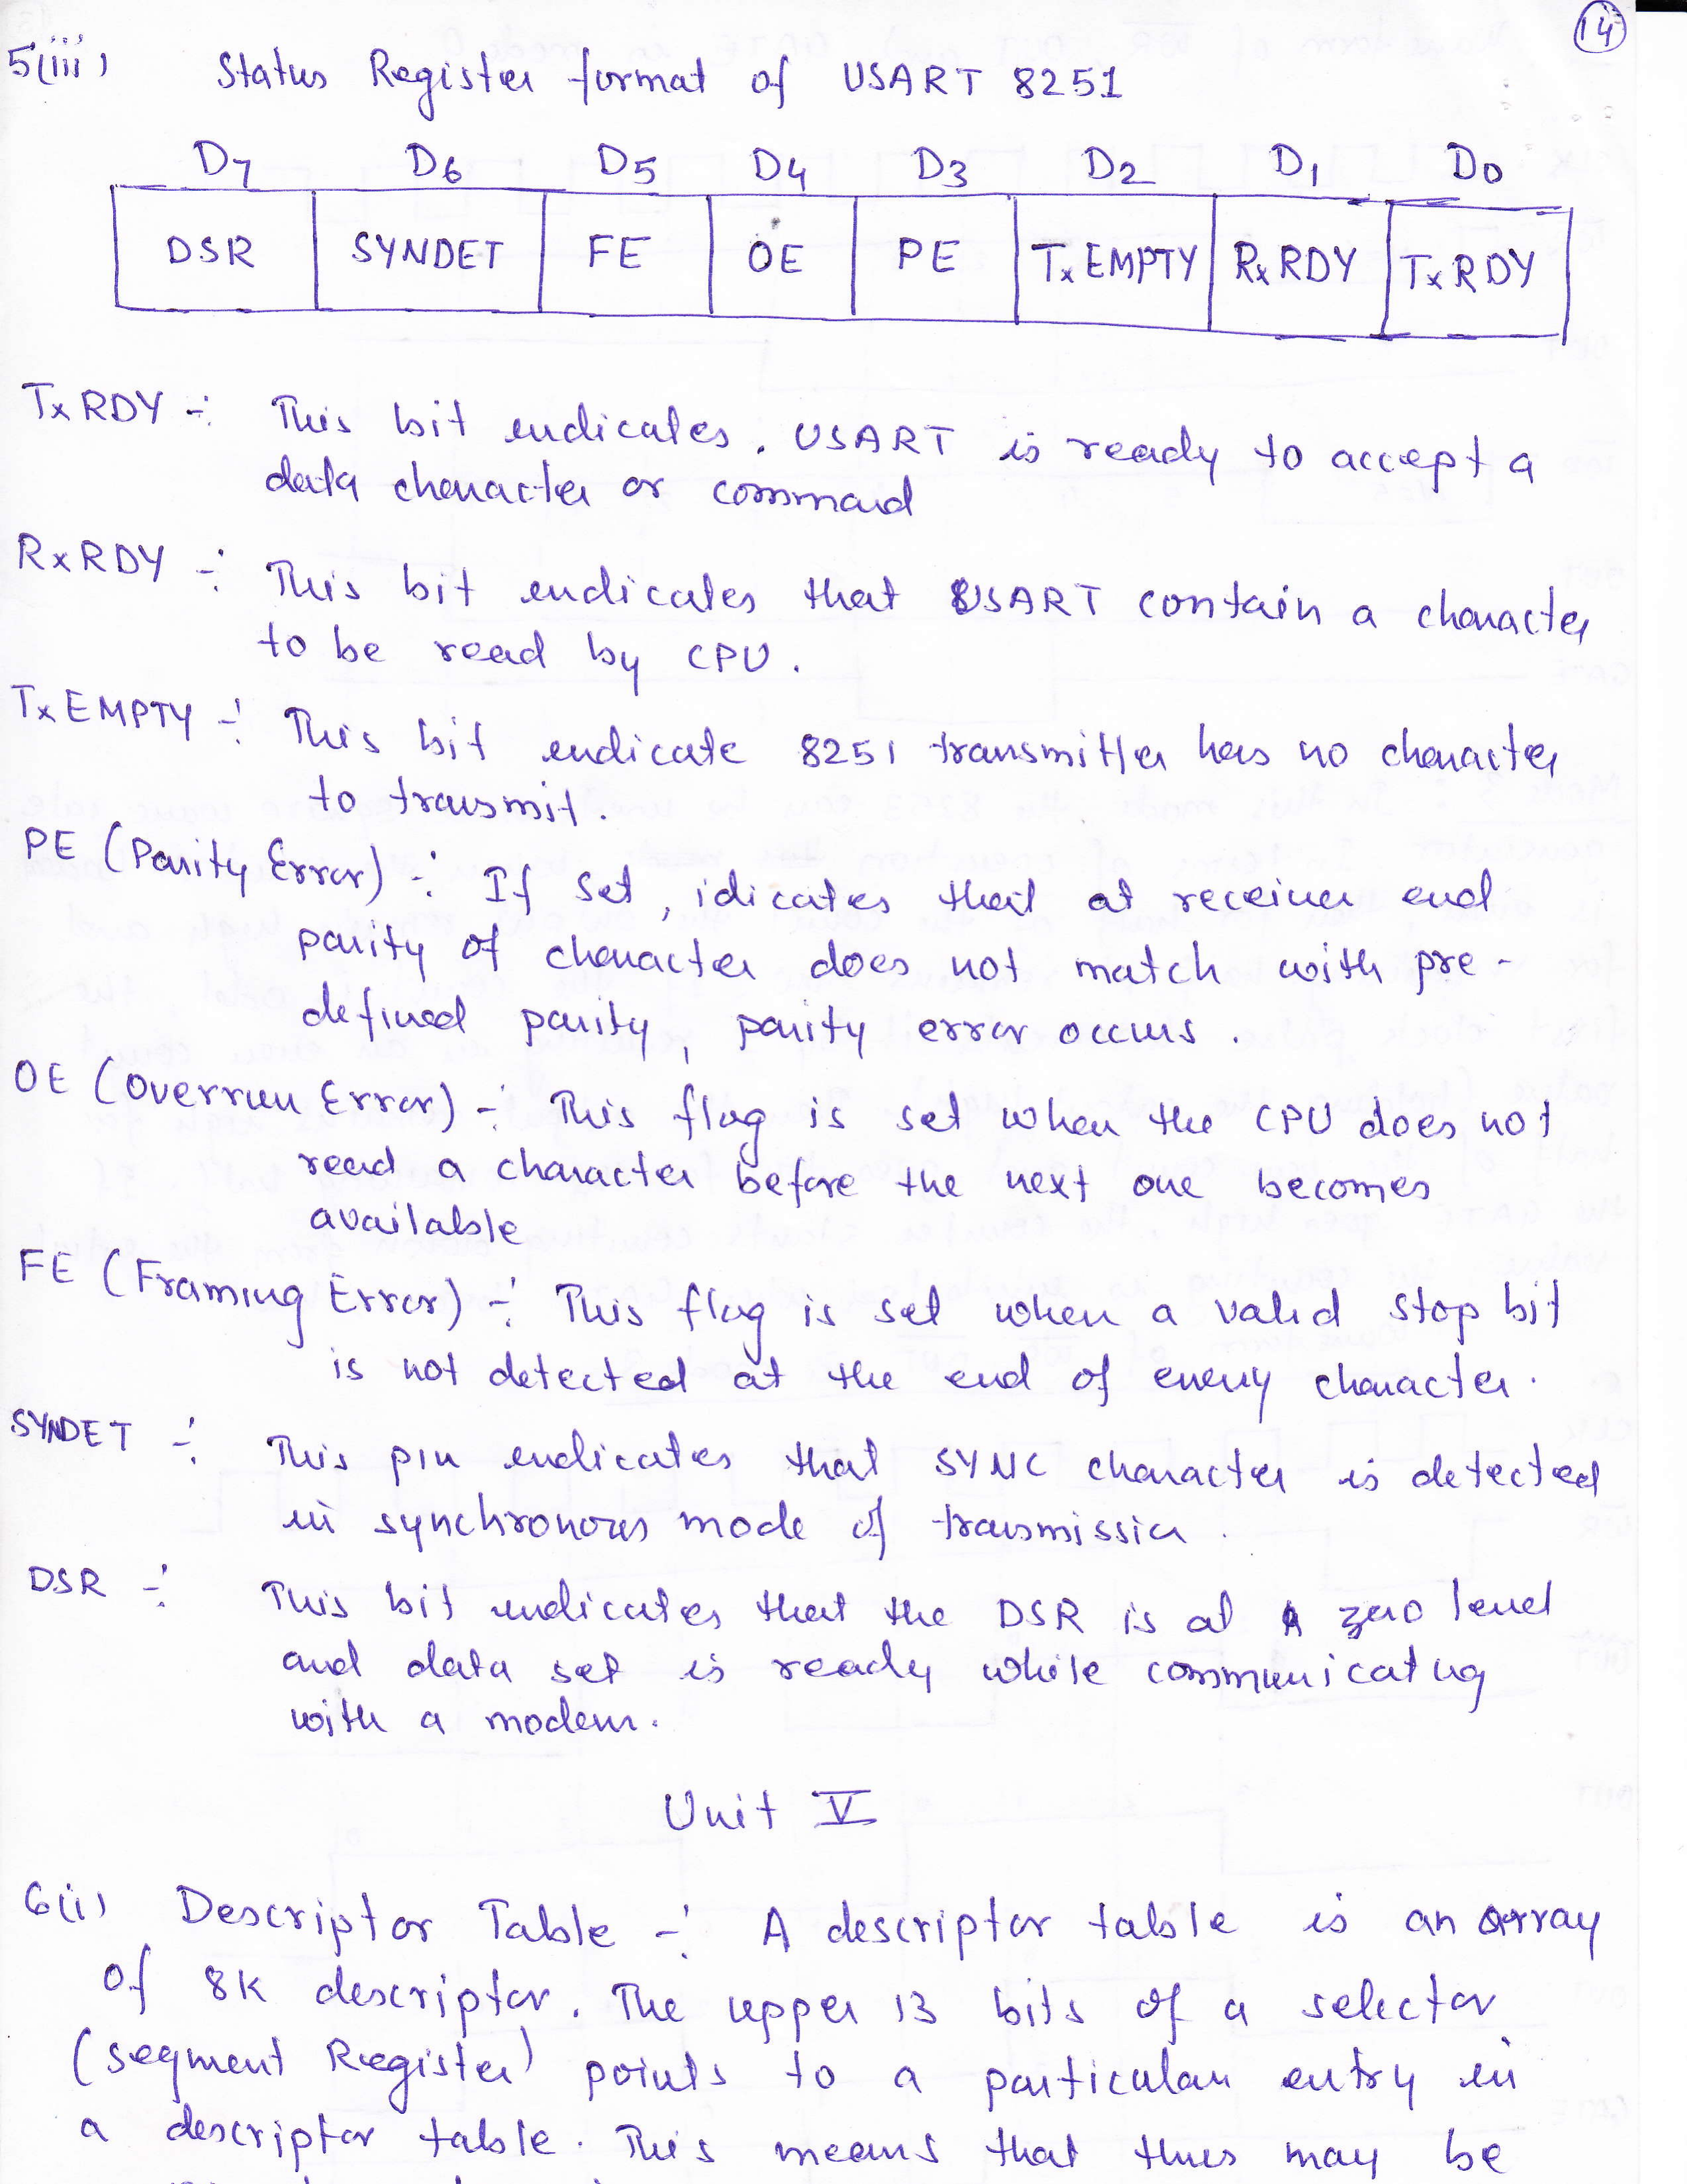 14
5(iii) Status Register format of USART 8251
D7 D6 D5 D4 D3 D2 D1 D0
DSR SYNDET FE OE PE TxEMPTY RxRDY TxRDY
TxRDY ÷ This bit indicates. USART is ready to accept a
data character or command
RxRDY ÷ This bit indicates that USART contain a character
to be read by CPU.
TxEMPTY ÷ This bit indicate 8251 transmitter has no character
to transmit.
PE (Parity Error) ÷ If set, idicates that at receiver end
parity of character does not match with pre-
defined parity, parity error occurs.
OE (Overrun Error) ÷ This flag is set when the CPU does not
read a character before the next one becomes
available
FE (Framing Error) ÷ This flag is set when a valid stop bit
is not detected at the end of every character.
SYNDET ÷ This pin indicates that SYNC character is detected
in synchronous mode of transmission.
DSR ÷ This bit indicates that the DSR is at zero level
and data set is ready while communicating
with a modem.
Unit V
6(i) Descriptor Table ÷ A descriptor table is an array
of 8K descriptor. The upper 13 bits of a selector
(segment Register) points to a particular entry in
a descriptor table. This means that thus may be